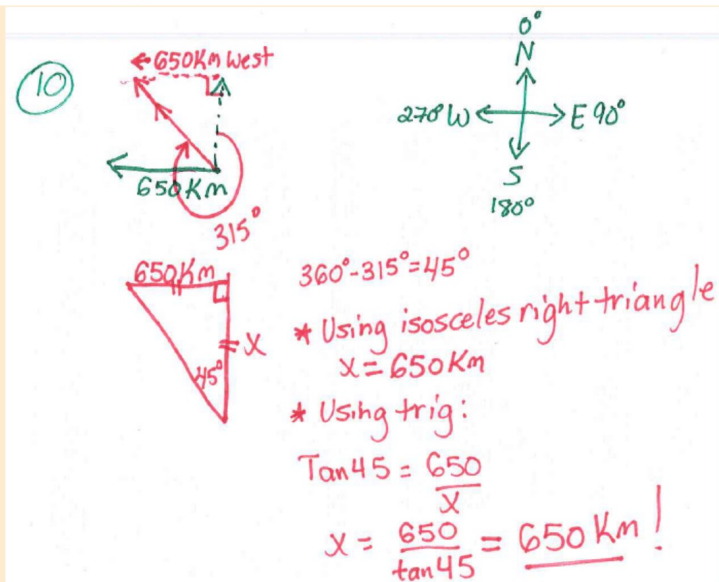 10
← 650Km West
650 Km
315°
0°
N
270° W
E 90°
S
180°
650Km
X
45°
360°-315°=45°
* Using isosceles right triangle
X = 650 Km
* Using trig:
Tan 45 = 650
X
X = 650 = 650 Km!
tan 45